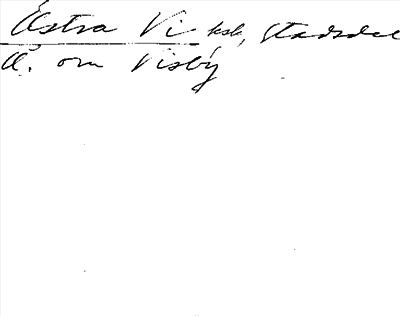 Östra Vi ksb, Stadsdel
Ö. om Visby